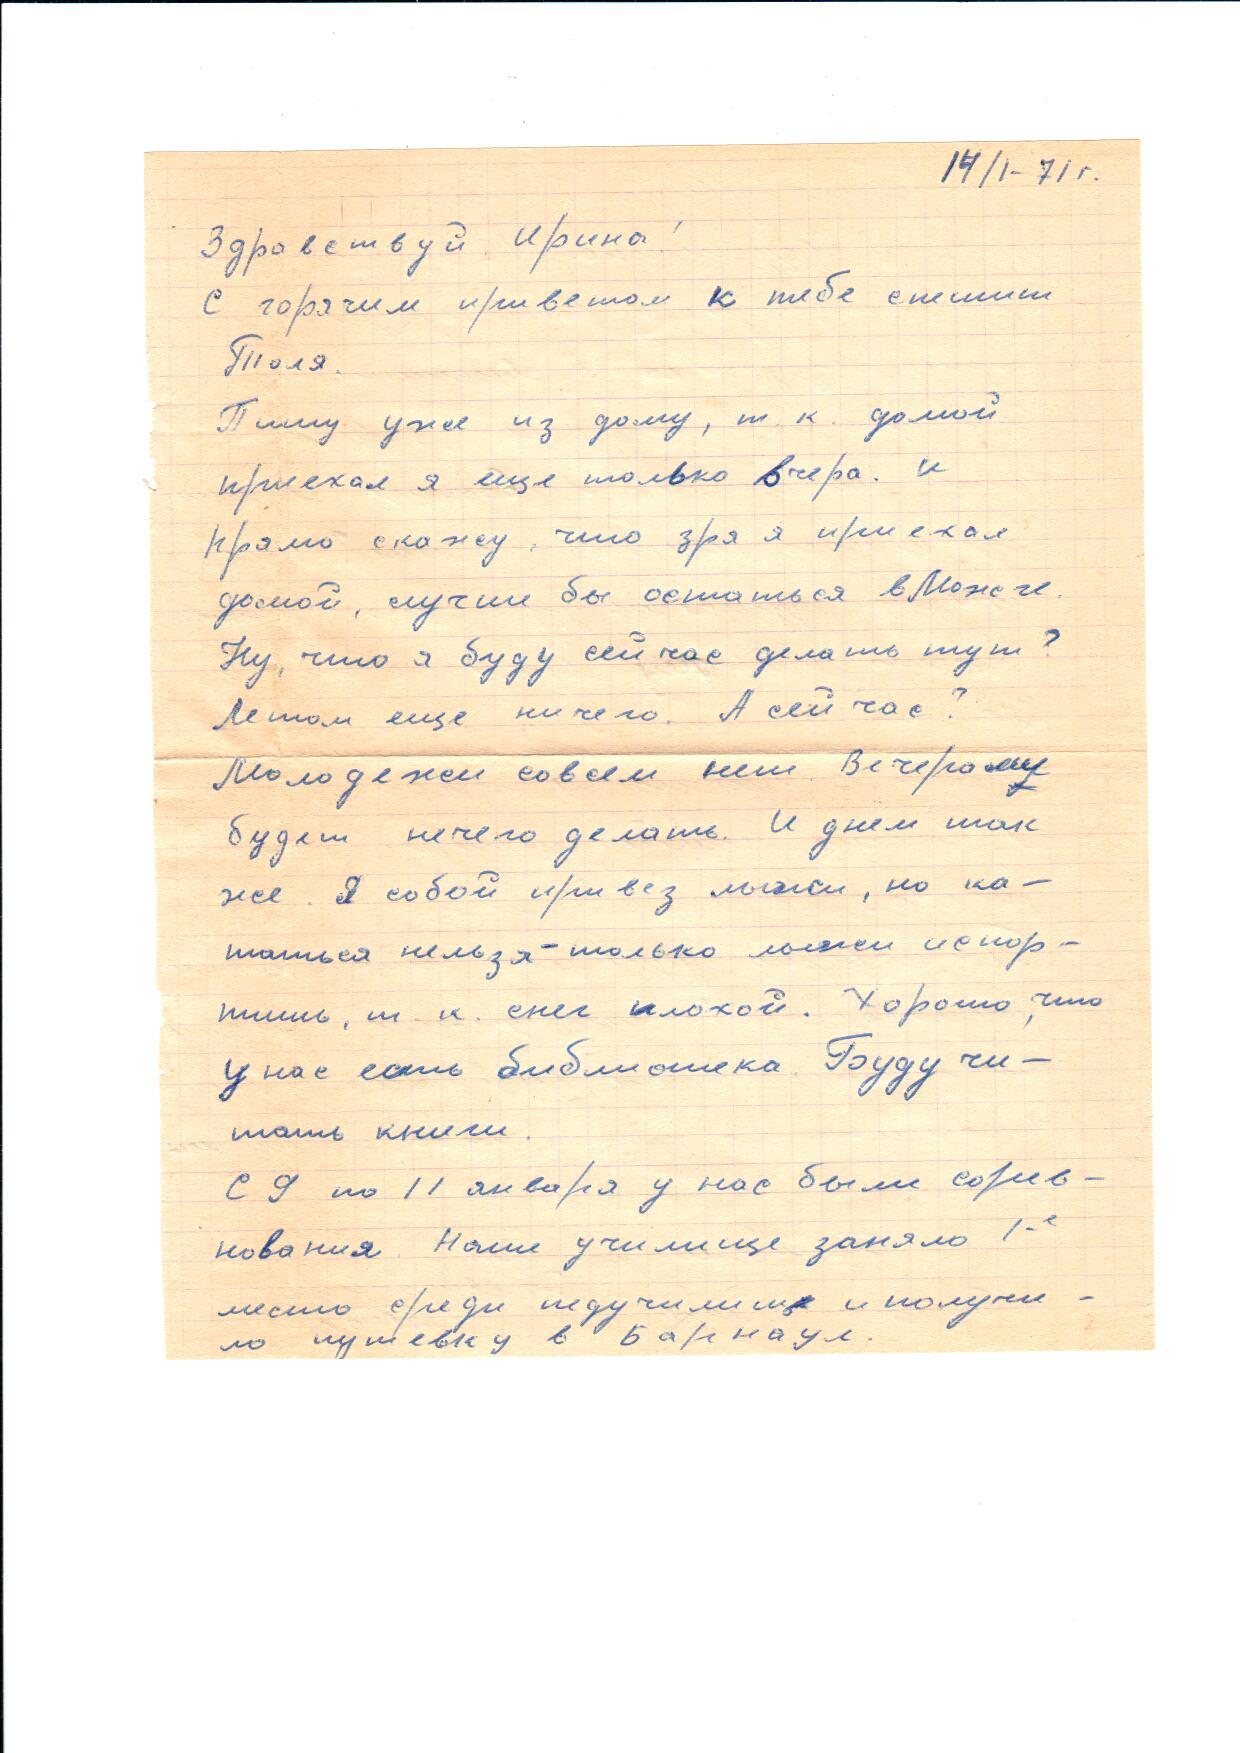 14/I-71 г.
Здравствуй, Ирина!
С горячим приветом к тебе спешит
Толя.
Пишу уже из дому, т. к. домой
приехал я еще только вчера. И
прямо скажу, что зря я приехал
домой, лучше бы остаться в Можге.
Ну, что я буду сейчас делать тут?
Летом еще ничего. А сейчас?
Молодежи совсем нет. Вечерами
будет нечего делать. И днем так
же. Я собой привез лыжи, но ка-
таться нельзя - только лыжи испор-
тишь, т. к. снег плохой. Хорошо, что
у нас есть библиотека. Буду чи-
тать книги.
С 9 по 11 января у нас были сорев-
нования. Наше училище заняло 1-е
место среди педучилищ и получи-
ло путевку в Барнаул.